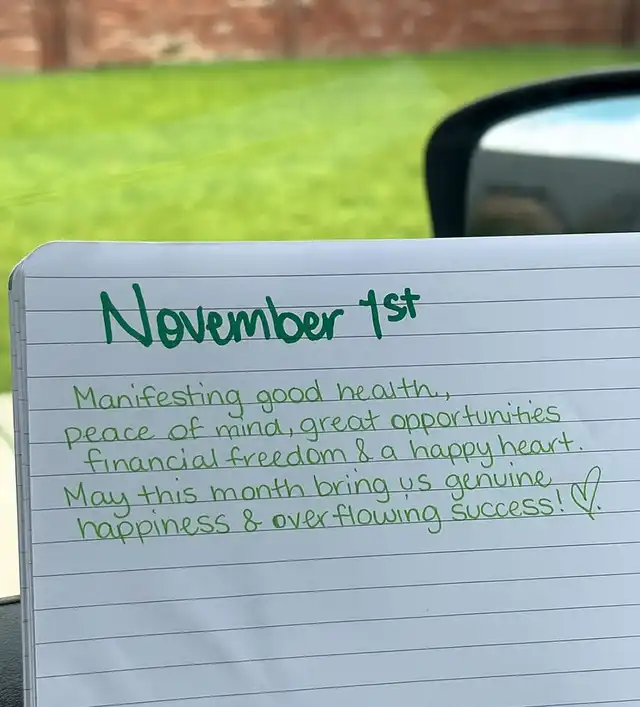 November 1st
Manifesting good health,
peace of mind, great opportunities
financial freedom & a happy heart.
May this month bring us genuine
happiness & overflowing success! ♡